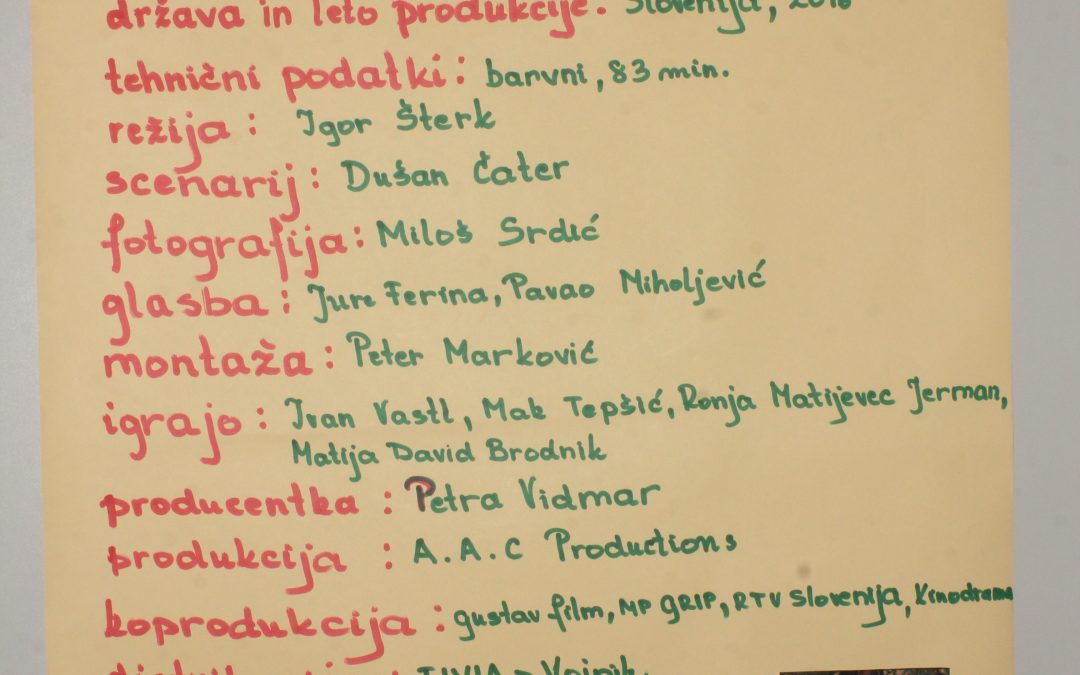 država in leto produkcije: Slovenija, 2018
tehnični podatki: barvni, 83 min.
režija: Igor Šterk
scenarij: Dušan Čater
fotografija: Miloš Srdić
glasba: Jure Ferina, Pavao Miholjević
montaža: Peter Marković
igrajo: Ivan Vastl, Mak Tepšić, Ronja Matijevec Jerman,
Matija David Brodnik
producentka: Petra Vidmar
produkcija: A.A.C Productions
koprodukcija: gustav film, MP GRIP, RTV Slovenija, Kinodrama